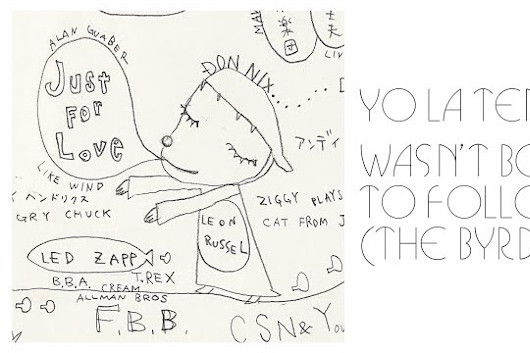 ALAN GUABER
Just
FOR
Love
LIKE WIND
DON NIX
楽
団
夫
アンディ
ヘンドリクス
GRY CHUCK
ZIGGY PLAYS
CAT FROM J
LEON
RUSSEL
LED ZAPP
B.B.A.
T.REX
CREAM
ALLMAN BROS
F.B.B.
CSN& You
YO LA TEN
WASN'T BO
TO FOLLO
(THE BYRD